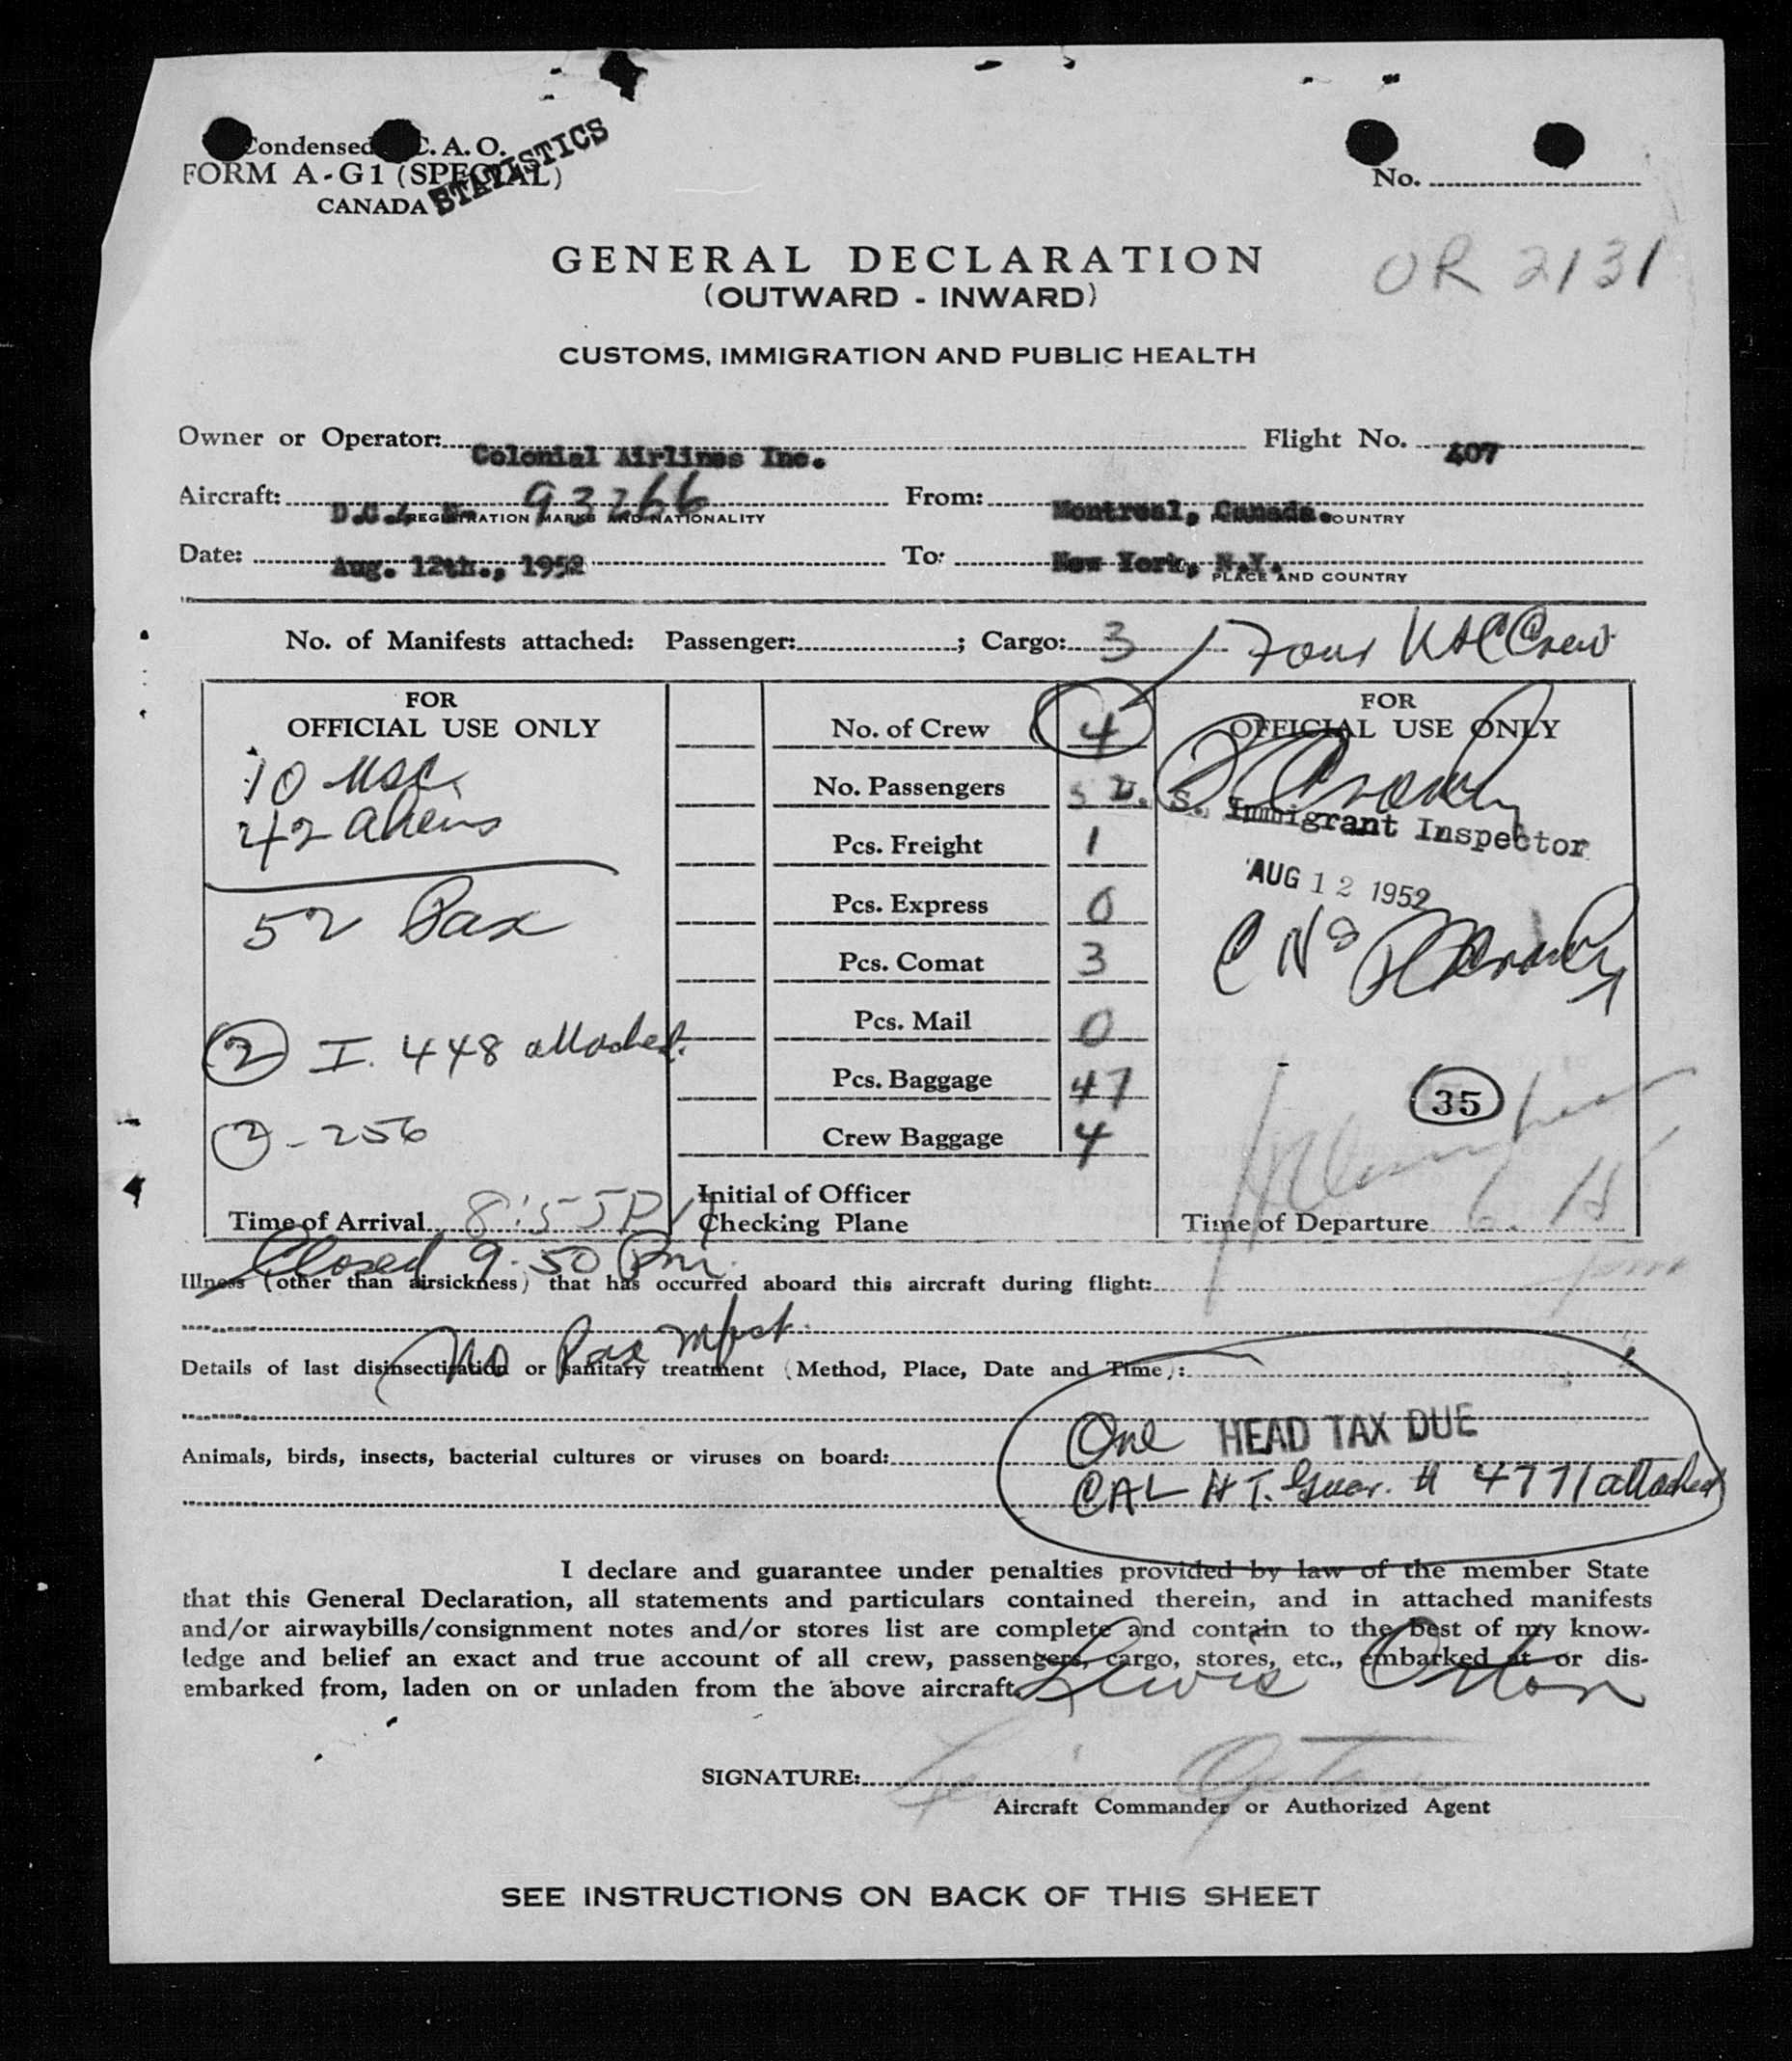 Condensed C. A. O.
FORM A-G1 (SPECIAL)
CANADA
STATISTICS
No.
OR 2131
GENERAL DECLARATION
(OUTWARD - INWARD)
CUSTOMS, IMMIGRATION AND PUBLIC HEALTH
Owner or Operator: Colonial Airlines Inc. Flight No. 407
Aircraft: D.C.4 N. 93266 From: Montreal, Canada.
REGISTRATION MARKS AND NATIONALITY COUNTRY
Date: Aug. 12th., 1952 To: New York, N.Y.
PLACE AND COUNTRY
No. of Manifests attached: Passenger: ; Cargo: 3 Four USC Crew
FOR
OFFICIAL USE ONLY
10 USC.
42 aliens
52 Pax
2 I. 448 attached.
2 - 256
Time of Arrival 8:55 P
No. of Crew 4
No. Passengers 52.
Pcs. Freight 1
Pcs. Express 0
Pcs. Comat 3
Pcs. Mail 0
Pcs. Baggage 47
Crew Baggage 4
Initial of Officer
Checking Plane
FOR
OFFICIAL USE ONLY
S. Immigrant Inspector
AUG 12 1952
35
Time of Departure 6.15
pm
Closed 9:50 Pm.
Illness (other than airsickness) that has occurred aboard this aircraft during flight:
No Pax Mfest.
Details of last disinsectization or sanitary treatment (Method, Place, Date and Time):
One HEAD TAX DUE
Animals, birds, insects, bacterial cultures or viruses on board:
CAL H T. Guar. # 4771 attached
I declare and guarantee under penalties provided by law of the member State
that this General Declaration, all statements and particulars contained therein, and in attached manifests
and/or airwaybills/consignment notes and/or stores list are complete and contain to the best of my know-
ledge and belief an exact and true account of all crew, passengers, cargo, stores, etc., embarked at or dis-
embarked from, laden on or unladen from the above aircraft.
Lewis Orton
SIGNATURE: Lewis Orton
Aircraft Commander or Authorized Agent
SEE INSTRUCTIONS ON BACK OF THIS SHEET